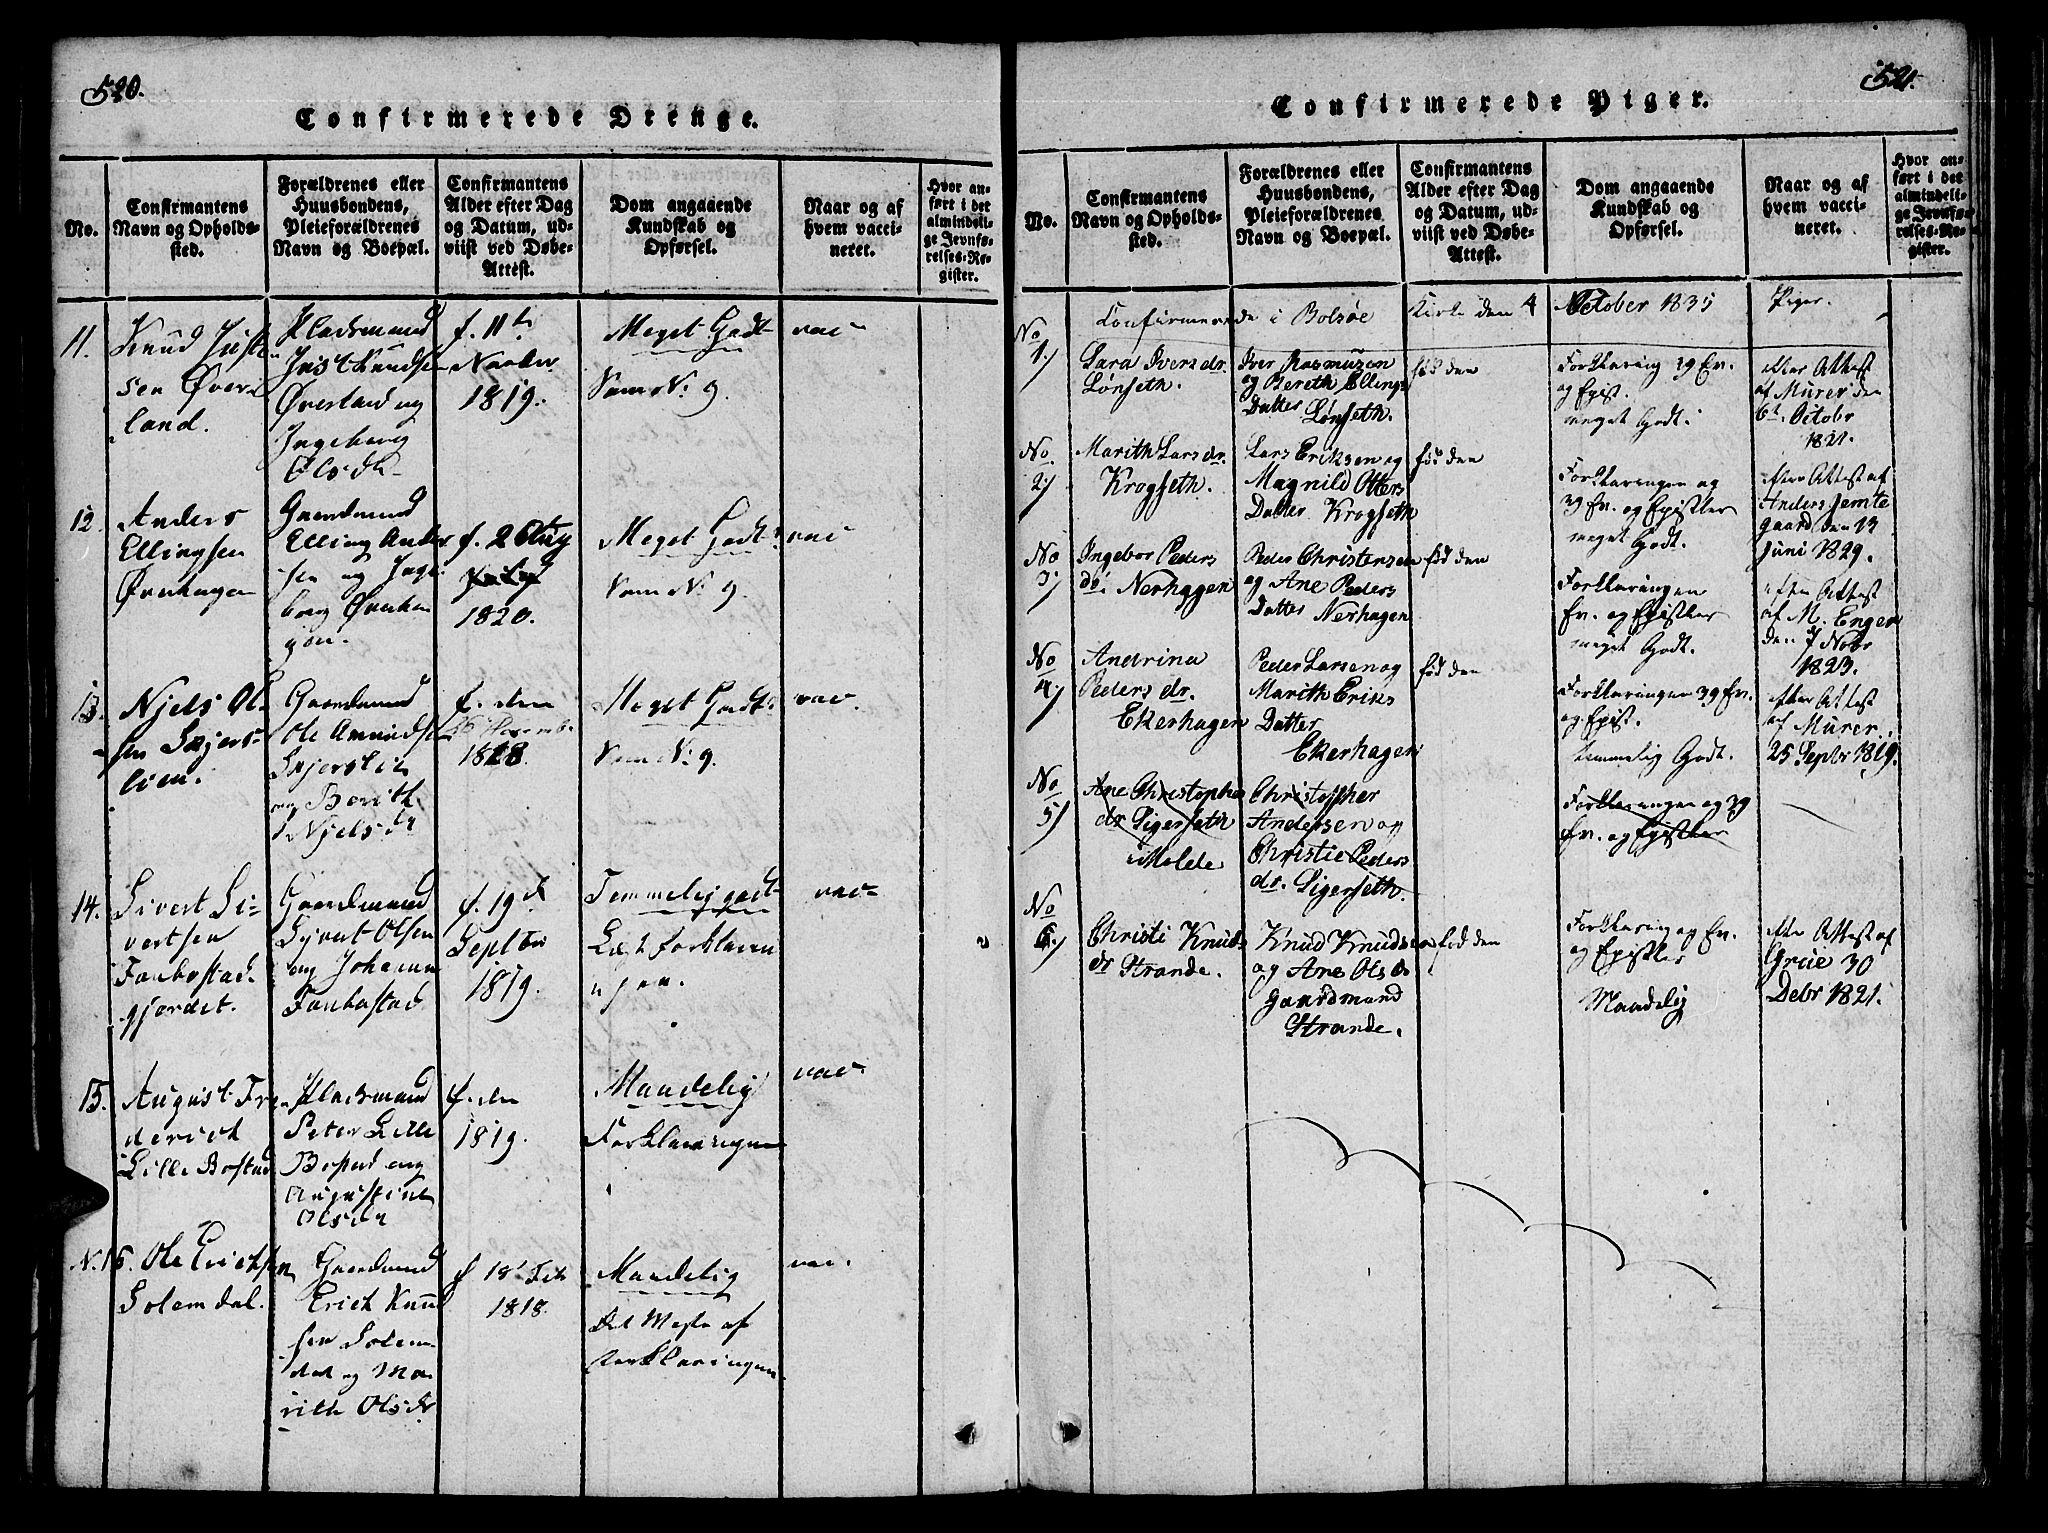 520.
Confirmerede Drenge.
No.
Confirmantens
Navn og Opholds-
sted.
Forældrenes eller
Huusbondens,
Pleieforældrenes
Navn og Boepæl.
Confirmantens
Alder efter Dag
og Datum, ud-
viist ved Døbe-
Attest.
Dom angaaende
Kundskab og
Opførsel.
Naar og af
hvem vacci-
neret.
Hvor an-
ført i det
almindeli-
ge Jevnfø-
relses-Re-
gister.
11.
Knud Just
sen Øver
land.
Pladsmand
Just Knudsen
Øverland og
Ingeborg
Olsdtr
f. 11te
Novbr
1819.
Meget Godt
Som No. 9.
vac
12.
Anders
Ellingsen
Øverhagen
Gaardmand
Elling Ander
sen og Inge
borg Øverha
gen.
f. 2 Aug
1820.
Meget Godt
Som No. 9.
vac
13.
Njels Ol
sen Skjers-
lien.
Gaardmand
Ole Amundsen
Skjerslien
og Berith
Njelsdr
f. den
1818.
Meget Godt
Som No. 9.
vac.
14.
Sivert Si-
vertsen
Fanbostad
gjerdet.
Gaardmand
Syvert Olsen
og Johanna
Fanbostad
f. 19d
Septbr
1819.
Temmelig godt
Læst Forklarin
gen.
vac
15.
August Fre
derich
Lille Bostad
Pladsmand
Peter Lille
Bostad og
Augustine
Olsdr
f. den
1819.
Maadelig
Forklaringen
vac
N. 16.
Ole Erichsen
Solemdal.
Gaardmand
Erich Knud
sen Solem
dal og Ma
rith Olsdr
f 18 Feb
1818.
Maadelig
Det Meste af
Forklaringen
vac.
521.
Confirmerede Piger.
No.
Confirmantens
Navn og Opholds-
sted.
Forældrenes eller
Huusbondens,
Pleieforældrenes
Navn og Boepæl.
Confirmantens
Alder efter Dag
og Datum, ud-
viist ved Døbe-
Attest.
Dom angaaende
Kundskab og
Opførsel.
Naar og af
hvem vacci-
neret.
Hvor an-
ført i det
almindeli-
ge Jevnfø-
relses-Re-
gister.
Confirmerede i Bolsøe Kirke den 4 October 1835 Piger.
No
1)
Sara Ivers dr.
Lønseth.
Iver Rasmuzen
og Bereth Ellings
Datter
Lønseth.
fød den
Forklaring og Ev.
og Epist.
meget Godt.
efter Attest
af Murer den
6te Octobr
1821.
No
2)
Marith Lars dr.
Krogseth.
Lars Eriksen og
Magnild Otters
Datter Krogseth
fød den
Forklaringen og
Ev. og Epistler
meget Godt.
efter Attest af
Anders Jemte
gaard den 13
Juni 1829.
No
3)
Ingebor Peders
dr. Nerhagen
Peder Christensen
og Ane Peders
Datter Nerhagen
fød den
Forklaringen
Ev. og Epistler
meget Godt.
efter Attest
af M. Enger
den 7 Nobr
1823.
No
4)
Andrina
Peders dr.
Ekerhagen
Peder Larsen og
Marith Eriks
Datter
Ekerhagen
fød den
Forklaringen og Ev.
og Epist.
temmelig Godt.
efter Attest
af Murer.
25 Septbr 1819.
No
5)
Ane Christopher
dr. Sigerseth
i Molde
Christopher
Andersen og
Christie Peders
dr. Sigerseth.
Forklaringen og
Ev. og Epistler
No
6)
Christi Knuds
dr Strande.
Knud Knudsen
og Ane Ols dr
gaardmand
Strande.
fød den
Forklaring og Ev.
og Epistler
Maadelig
efter Attest af
Grüe 30
Debr 1821.